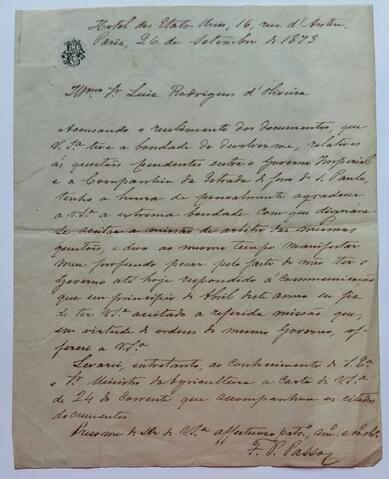 Hotel des Etats-Unis, 16, rue d'Antin,
Paris, 26 de Setembro de 1873
Illmo Sr Luiz Rodrigues d'Oliveira
Accusando o recebimento dos documentos, que
V. Sª teve a bondade de devolver-me, relativos
ás questões pendentes entre o Governo Imperial
e a Companhia da Estrada de ferro de S. Paulo,
tenho a honra de penhoradamente agradecer
a V. Sª a extrema bondade com que dignára-
se aceitar a missão de arbitro das mesmas
questões, e devo ao mesmo tempo manifestar
meu profundo pezar pelo facto de não ter o
Governo até hoje respondido á communicação
que em principio de Abril deste anno eu fiz
de ter V. Sª aceitado a referida missão que,
em virtude de ordens do mesmo Governo, of-
fereci a V. Sª
Levarei, entretanto, ao conhecimento de S. Exª
o Sr Ministro da Agricultura a carta de V. Sª
de 24 do corrente que acompanhou os citados
documentos.
Preso-me de ser de V. Sª affectuoso patrº, amº e
F. P. Passos